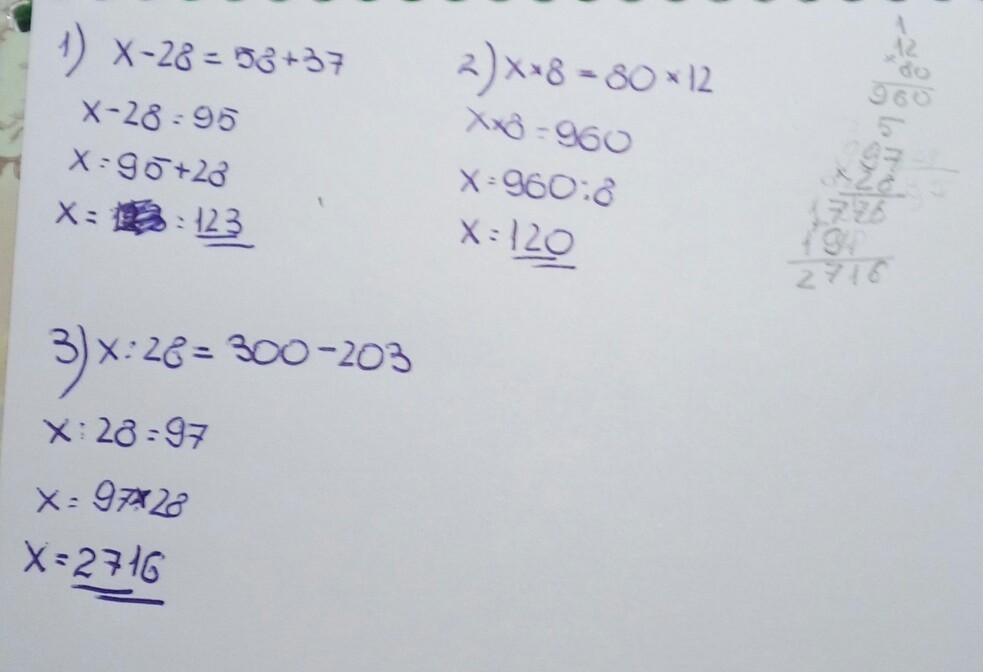 1) x-28=58+37
x-28=95
x=95+28
x= =123
2) x×8=80×12
x×8=960
x=960:8
x=120
1
12
×80
960
5
97
×28
1776
194
2716
3) x:28=300-203
x:28=97
x=97×28
x=2716